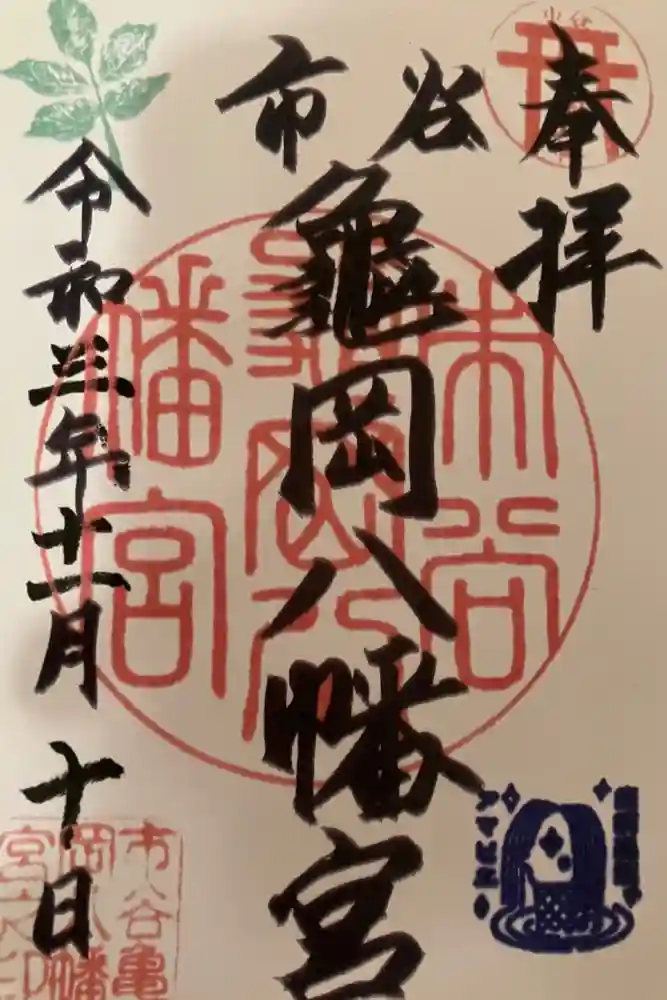 奉拝
市谷
亀岡八幡宮
令和三年十一月十日
市谷
亀岡八
幡宮
アマビエ
市谷亀
岡八幡
宮